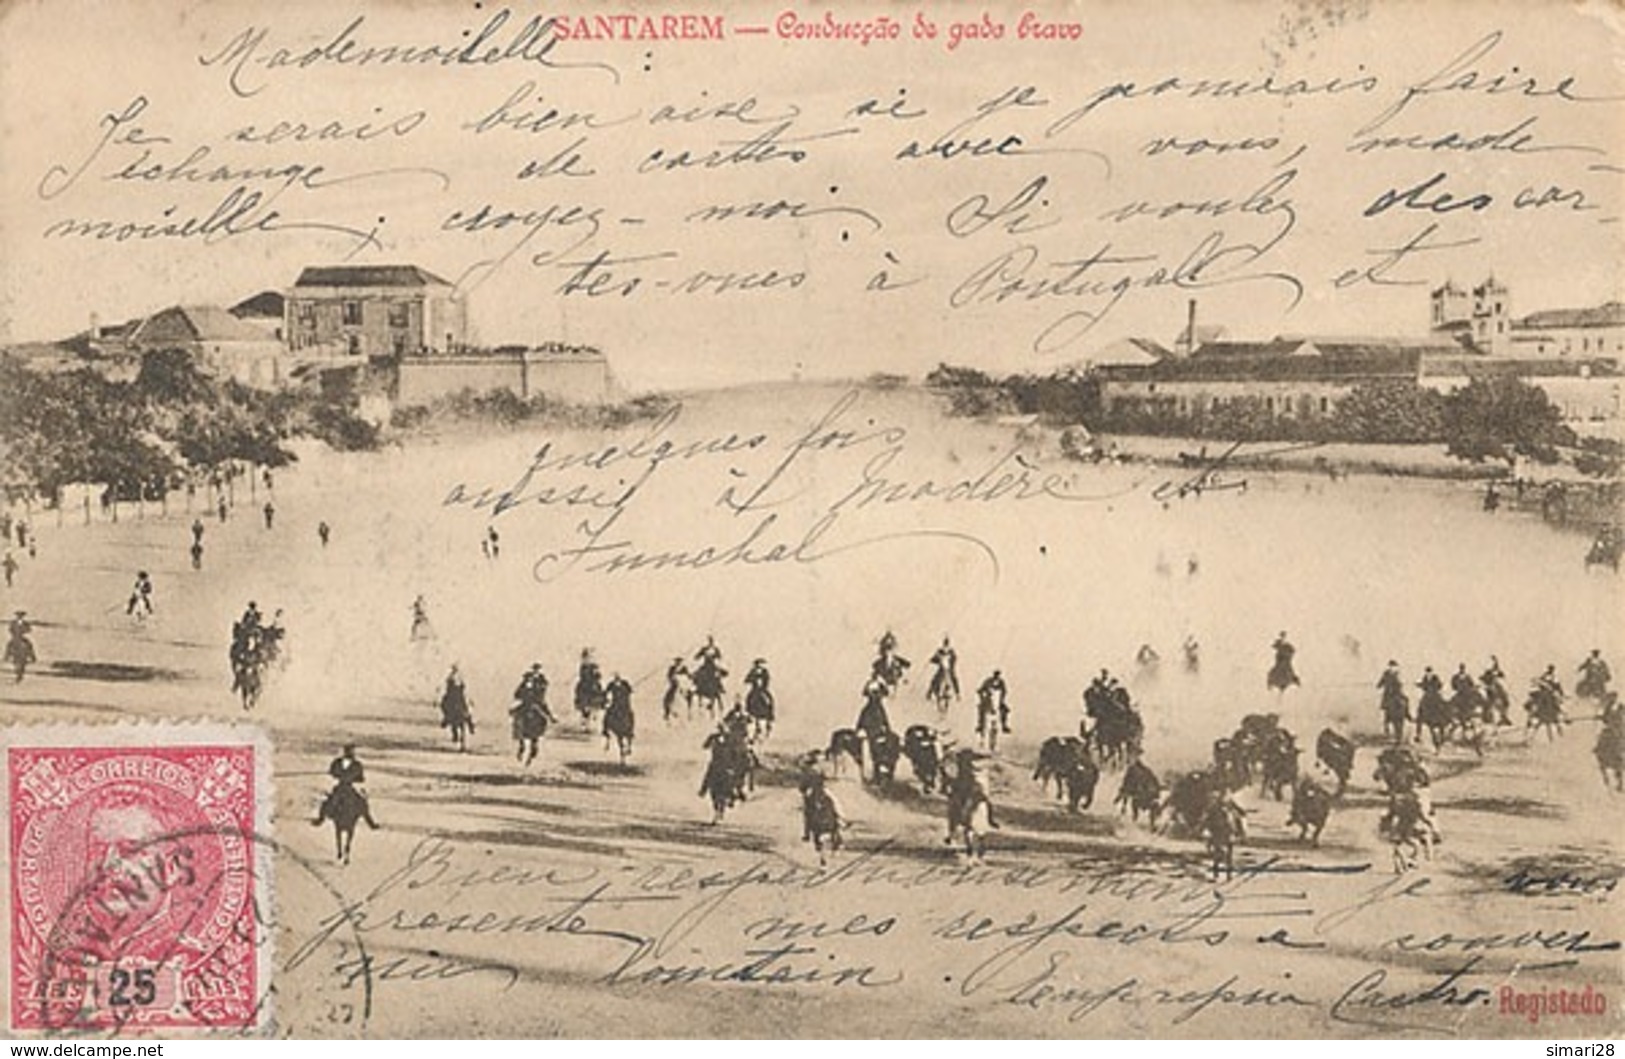 SANTAREM — Conducção de gado bravo
Mademoiselle :
Je serais bien aise si je pouvais faire
l'échange de cartes avec vous, made-
moiselle ; croyez-moi. Si voulez des car-
tes-vues à Portugal et
quelques fois
aussi à Madère et
Funchal.
Bien respectueusement je vous
presente mes respects e
lointain.
Castro.
Registado
CORREIOS
PORTUGAL
CONTINENTE
25
REIS REIS
SANTAREM
www.delcampe.net
simari28